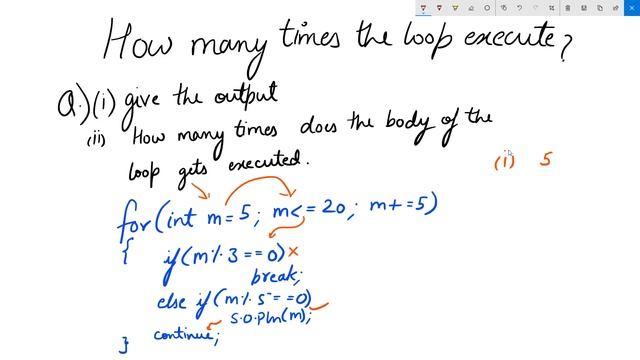 How many times the loop execute?
Q.) (i) give the output
(ii) How many times does the body of the
loop gets executed.
(i) 5
for(int m=5; m<=20; m+=5)
{ if(m%3==0) x
break;
else if(m%5==0)
S.O.Pln(m);
continue;
}